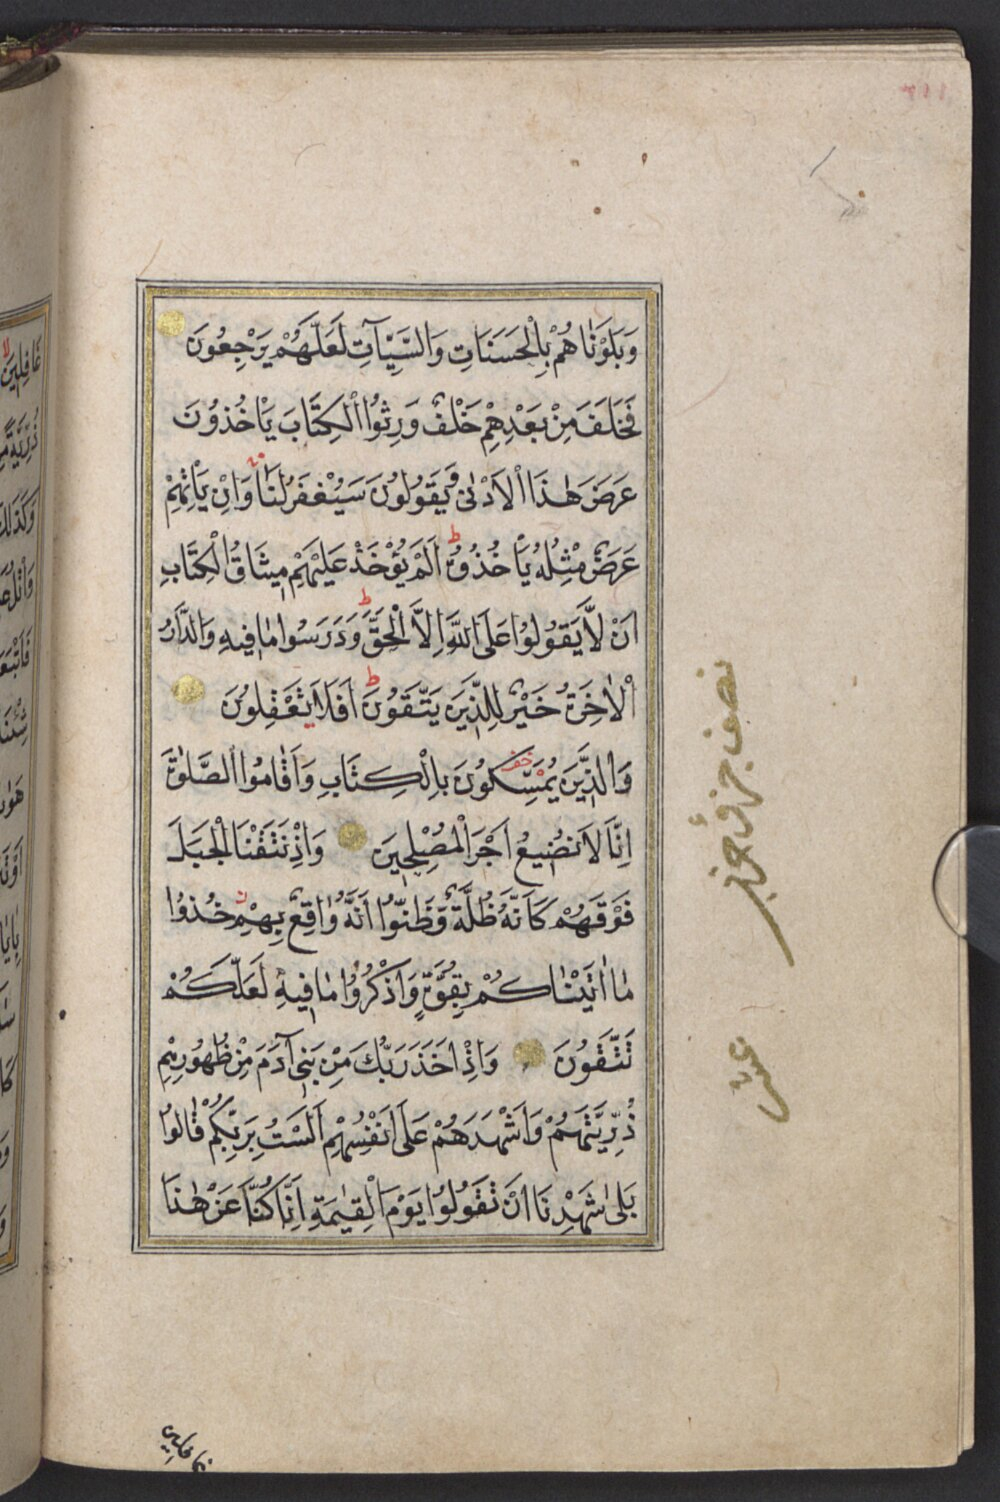 وَبَلَوْنَاهُمْ بِالْحَسَنَاتِ وَالسَّيِّآتِ لَعَلَّهُمْ يَرْجِعُونَ
فَخَلَفَ مِنْ بَعْدِهِمْ خَلْفٌ وَرِثُوا الْكِتَابَ يَأْخُذُونَ
عَرَضَ هٰذَا الْاَدْنٰى وَيَقُولُونَ سَيُغْفَرُ لَنَا وَاِنْ يَأْتِهِمْ
عَرَضٌ مِثْلُهُ يَأْخُذُوهُ اَلَمْ يُؤْخَذْ عَلَيْهِمْ مِيثَاقُ الْكِتَابِ
اَنْ لَا يَقُولُوا عَلَى اللّٰهِ اِلَّا الْحَقَّ وَدَرَسُوا مَا فِيهِ وَالدَّارُ
الْاٰخِرَةُ خَيْرٌ لِلَّذِينَ يَتَّقُونَ اَفَلَا تَعْقِلُونَ
وَالَّذِينَ يُمَسِّكُونَ بِالْكِتَابِ وَاَقَامُوا الصَّلٰوةَ
اِنَّا لَا نُضِيعُ اَجْرَ الْمُصْلِحِينَ وَاِذْ نَتَقْنَا الْجَبَلَ
فَوْقَهُمْ كَاَنَّهُ ظُلَّةٌ وَظَنُّوا اَنَّهُ وَاقِعٌ بِهِمْ خُذُوا
مَا اٰتَيْنَاكُمْ بِقُوَّةٍ وَاذْكُرُوا مَا فِيهِ لَعَلَّكُمْ
تَتَّقُونَ وَاِذْ اَخَذَ رَبُّكَ مِنْ بَنِي آدَمَ مِنْ ظُهُورِهِمْ
ذُرِّيَّتَهُمْ وَاَشْهَدَهُمْ عَلَى اَنْفُسِهِمْ اَلَسْتُ بِرَبِّكُمْ قَالُوا
بَلٰى شَهِدْنَا اَنْ تَقُولُوا يَوْمَ الْقِيٰمَةِ اِنَّا كُنَّا عَنْ هٰذَا
نصف جزؤ
عشر
غافلين